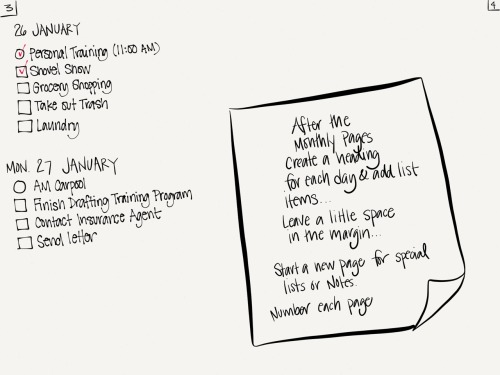 3
4
26 JANUARY
Personal Training (11:00 AM)
Shovel Snow
Grocery Shopping
Take out Trash
Laundry
MON. 27 JANUARY
AM Carpool
Finish Drafting Training Program
Contact Insurance Agent
Send letter
After the
Monthly Pages
Create a heading
for each day & add list
items...
Leave a little space
in the margin...
Start a new page for special
lists or Notes.
Number each page